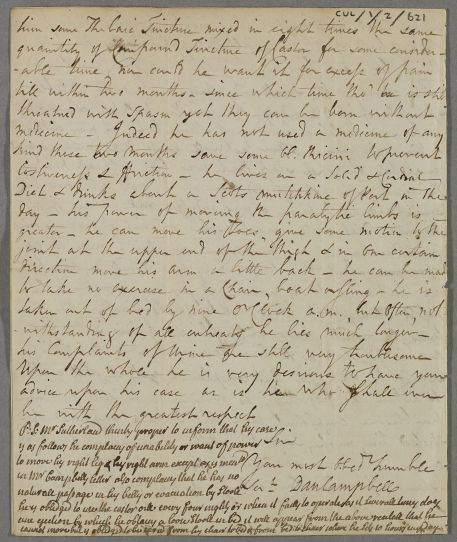 CUL/1/2/ 621
him some Thebaic Tincture mixed in eight times the same
quantity of Compound Tincture of Castor for some consider-
-able time nor could he want it for excess of pain
till within two months - since which time tho' he is still
threatned with Spasm yet they can be born without
medicine - Indeed he has not used a medicine of any
kind these two months save some ol. Ricini to prevent
Costiveness & friction - he lives on a Solid & Cordial
Diet & drinks about a Scots mutchkine of Port in the
day - his power of moving the paralytic limbs is
greater - he can move his Toes, give some motion to the
joint at the upper end of the thigh & in one certain
direction move his arm a little back - he can be made
to take no exercise in a Chair, boat or - he is
taken out of bed by nine o'Clock a.m. but Often not-
-withstanding of all entreaty he lies much longer -
his Complaints of Urine are still very troublesome
Upon the whole he is very desirous to have your
advice upon his case as is he who shall ever
be with the greatest respect
P.S. Mr Sutherland thinks proper to inform that his case
is as follows he complains of inability or want of power
Sir
to move his right leg & his right arm except as is
Your most obed.t humble
in Mr Campbells letter also complains that he has no
Ser.t Dan Campbell
naturall passage in his belly or evacuation by stool
he is obledged to use the castor oile every four nights or when it fails to operate as it severall times does
use by which he obtains a loose stool in bed it will appear from the above recitall that he
cannot move but is obledged to be from his chair to bed & from bed to